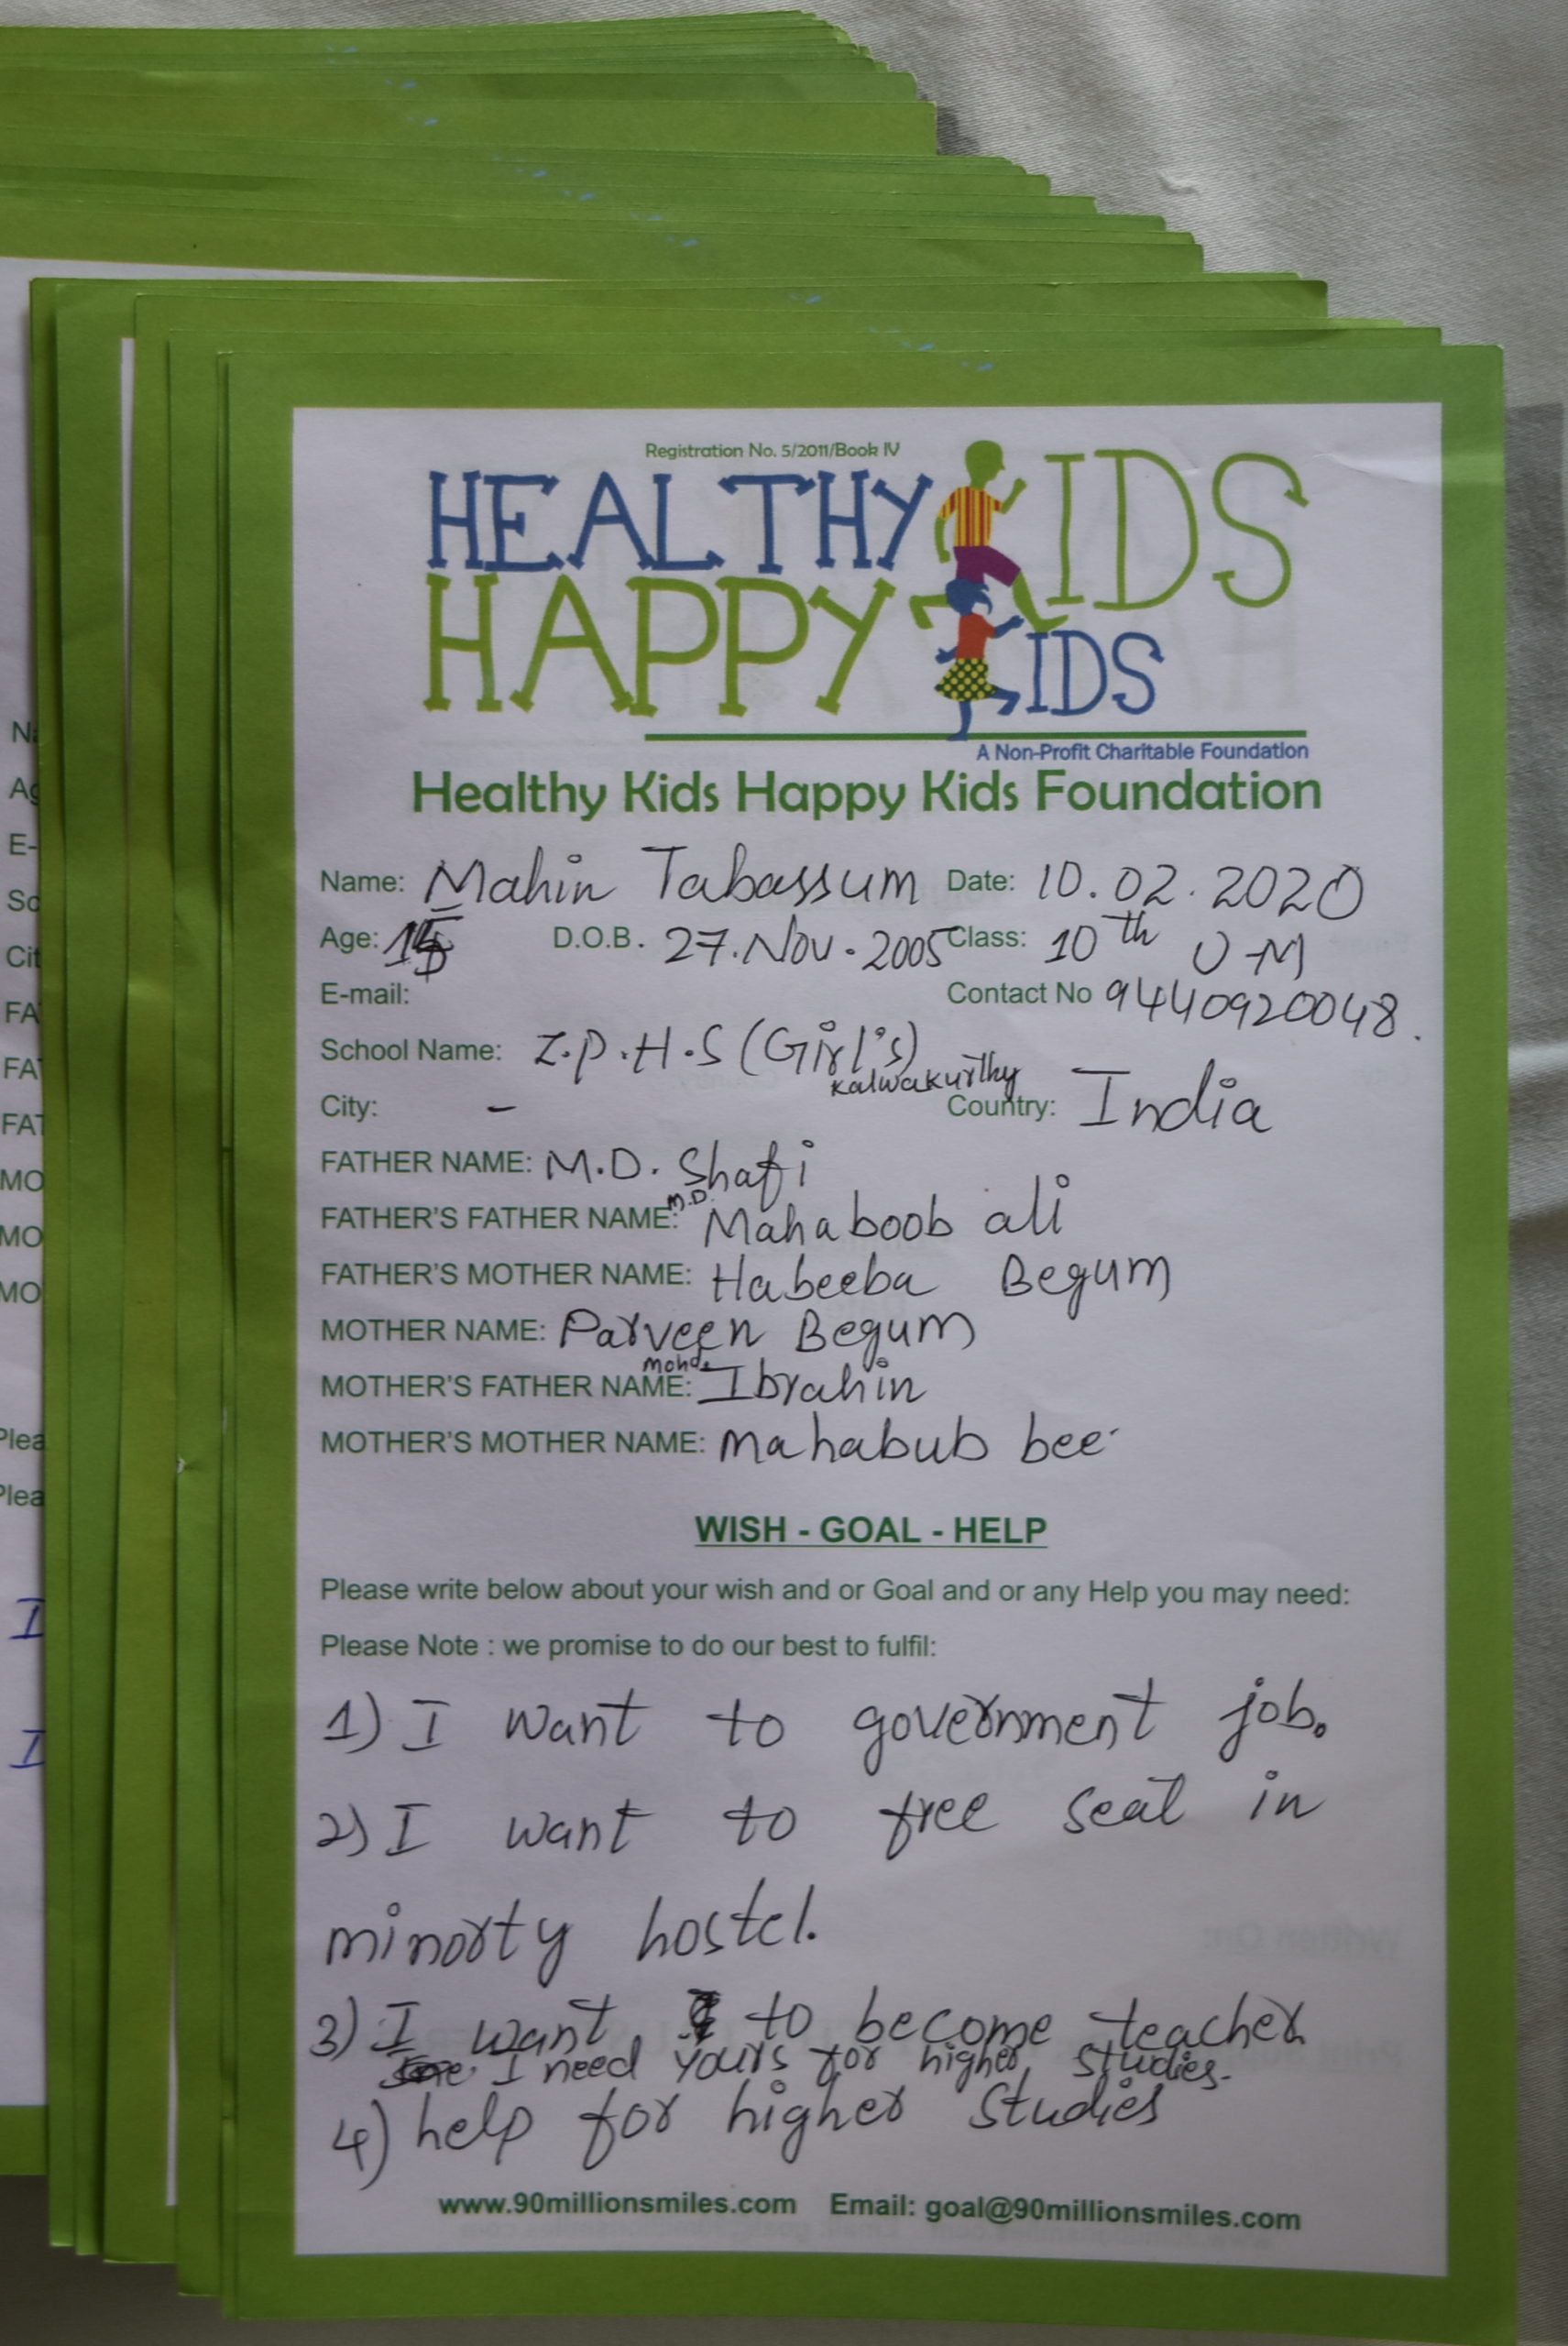 Registration No. 5/2011/Book IV
HEALTHY KIDS
HAPPY KIDS
A Non-Profit Charitable Foundation
Healthy Kids Happy Kids Foundation
Name: Mahin Tabassum Date: 10.02.2020
Age: D.O.B. 27.Nov.2005 Class: 10th U-M
E-mail: Contact No 9440920048.
School Name: Z.P.H.S (Girl's)
kalwakurthy
City: - Country: India
FATHER NAME: M.D. Shafi
FATHER'S FATHER NAME: M.D. Mahaboob ali
FATHER'S MOTHER NAME: Habeeba Begum
MOTHER NAME: Parveen Begum
MOTHER'S FATHER NAME: Mohd. Ibrahin
MOTHER'S MOTHER NAME: Mahabub bee
WISH - GOAL - HELP
Please write below about your wish and or Goal and or any Help you may need:
Please Note : we promise to do our best to fulfil:
1) I want to government job.
2) I want to free seat in
minorty hostel.
3) I want to become teacher
I need yours for higher studies.
4) help for higher studies
www.90millionsmiles.com Email: goal@90millionsmiles.com